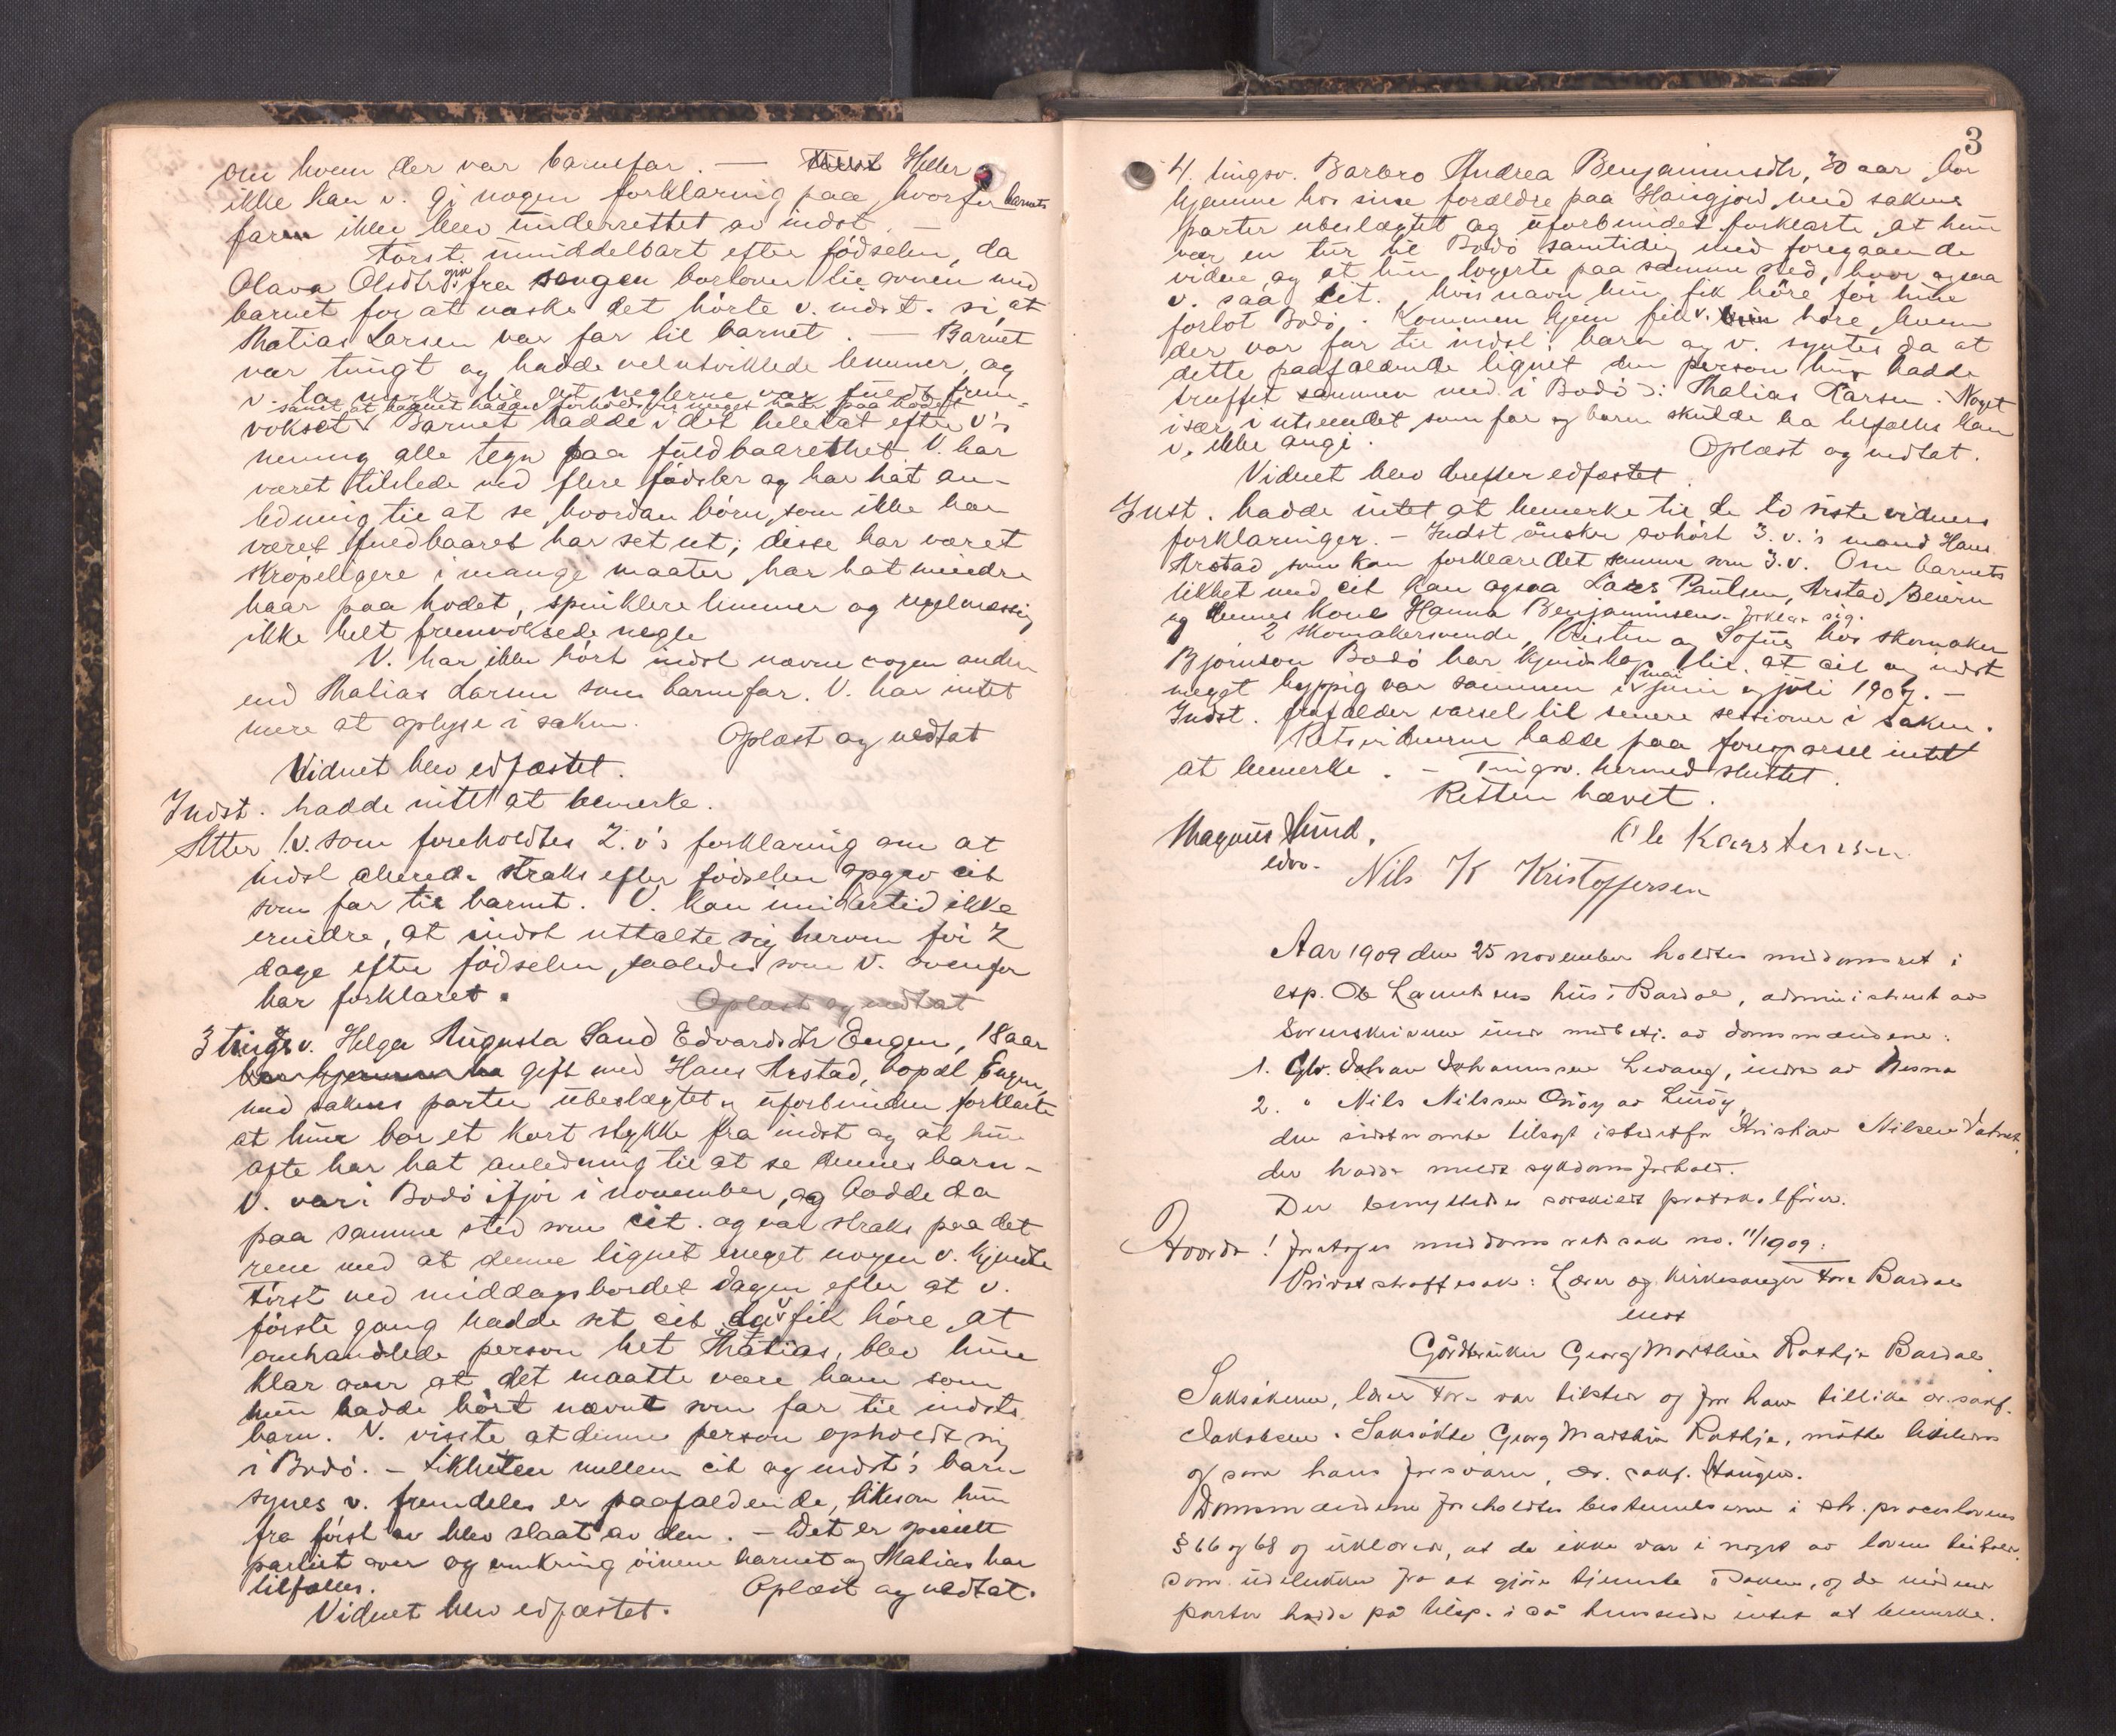 om hvem der var barnefar. — Heller
ikke kan v. gi nogen forklaring paa hvorfor barnets
faren ikke blev underrettet av indst. —
Först umiddelbart efter födselen, da
Olava Olsdtr gik fra sengen bortover til ovnen med
barnet for at vaske det hörte v. indst. si, at
Matias Larsen var far til barnet. — Barnet
var tungt og hadde velutviklede lemmer, og
v. la merke til at neglerne var fuldt frem-
samt at barnet hadde forholdsvis meget haar paa hodet
vokset. Barnet hadde i det hele tat efter v's
mening alle tegn paa fuldbaarethet. V. har
været tilstede ved flere fødsler og har hat an-
ledning til at se hvordan börn, som ikke har
været fuldbaaret har set ut; disse har været
skröpeligere i mange maater, har hat mindre
haar paa hodet, spinklere lemmer og regelmæssig
ikke helt fremvoksede negle
V. har ikke hört indst nævne nogen anden
end Matias Larsen som barnefar. V. har intet
mere at oplyse i saken.
Oplæst og vedtat
Vidnet blev edfæstet.
Indst. hadde intet at bemerke.
Atter 1.v. som foreholdtes 2. v's forklaring om at
indst allerede straks efter födselen opgav cit
som far til barnet. V. kan imidlertid ikke
erindre, at indst uttalte sig herom för 2
dage efter födselen, saaledes som v. ovenfor
har forklaret.
Oplæst og vedtat
3 tingsv. Helga Augusta Sand Edvardsdtr Engen, 18 aar
bor hjemme hos gift med Hans Arstad, bopæl Engen,
med sakens parter ubeslægtet og uforbunden forklarte
at hun bor et kort stykke fra indst og at hun
ofte har hat anledning til at se dennes barn –
V. var i Bodö ifjor i november, og bodde da
paa samme sted som cit. og var straks paa det
rene med at denne lignet meget nogen v. kjendte
Først ved middagsbordet dagen efter at v.
förste gang hadde set cit da v fik höre, at
omhandlede person het Matias, blev hun
klar over at det maatte være ham som
hun hadde hört nævnt som far til indsts
barn. V. visste at denne person opholdt sig
i Bodö. – Likheten mellem cit og indst's barn
synes v. fremdeles er paafaldende, likesom hun
fra först av blev slaat av den. – Det er specielt
partiet over og omkring öinene barnet og Matias har
tilfælles. Oplæst og vedtat.
Vidnet blev edfæstet.
3
4. tingsv. Barbro Andrea Benjaminsdtr, 30 aar, bor
hjemme hos sine forældre paa Haugjord, med sakens
parter ubeslægtet og uforbundet forklarte, at hun
var en tur til Bodö samtidig med foregaaende
vidne og at hun logerte paa samme sted, hvor ogsaa
v. saa cit. hvis navn hun fik höre för hun
forlot Bodö. Kommen hjem fik v. höre, hvem
der var far til indst's barn og v. syntes da at
dette paafaldende lignet den person hun hadde
truffet sammen med i Bodö ɔ: Matias Larsen. Noget
især i utseendet som far og barn skulde ha tilfælles kan
v. ikke angi.
Oplæst og vedtat.
Vidnet blev derefter edfæstet.
Inst. hadde intet at bemerke til de to siste vidners
forklaringer. – Indst önsker avhört 3. v.'s mand Hans
Arstad, som kan forklare det samme som 3. v. Om barnets
likhet med cit kan ogsaa Lars Paulsen, Arstad, Beiern
og dennes kone Hanna Benjaminsen forklare sig.
2 skomakersvende, Kristen og Sofus hos skomaker
Björnson Bodö har kjendskap til at cit og indst
meget hyppig var sammen i mai juni og juli 1907. –
Indst. frafalder varsel til senere sessioner i saken.
Retsvidnerne hadde paa foresporsel intet
at bemerke. – Tingsv. hermed sluttet.
Retten hævet.
Magnus Lund. Ole Karstensen
edsv. Nils K Kristoffersen
Aar 1909 den 25 november holdtes meddomsret i
exp. Ole Lauritsens hus i Bardal, administrert av
sorenskriveren under medvirk. av domsmændene:
1. Gbr. Johan Johannessen Levang, indre av Nesna
2. " Nils Nilssen av Lurøy
den sidstnævnte tilsagt istedetfor Kristian Nilsen
der hadde meldt sykdomsforhold.
Der benyttedes særskildt protokolförer.
Hvorda! foretoges meddomsrets sak no. 11/1909:
Privat straffesak: Lærer og kirkesanger Tore Bardal
mot
Gårdbruker Georg Marthin Rothje Bardal.
Saksökeren, lærer Tore var tilstede og for ham tillike or. sakf.
Jakobsen. Saksökte Georg Marthin Rothje, mötte likeledes
og som hans forsvarer, or. sakf. Haugen.
Domsmændene foreholdtes bestemmelserne i str. proceslovens
§ 66 og 68 og erklærede, at de ikke var i noget av lovens tilfælde
som udelukker fra at gjöre tjeneste i saken, og de mödende
parter hadde på tilsp. i så henseende intet at bemerke.